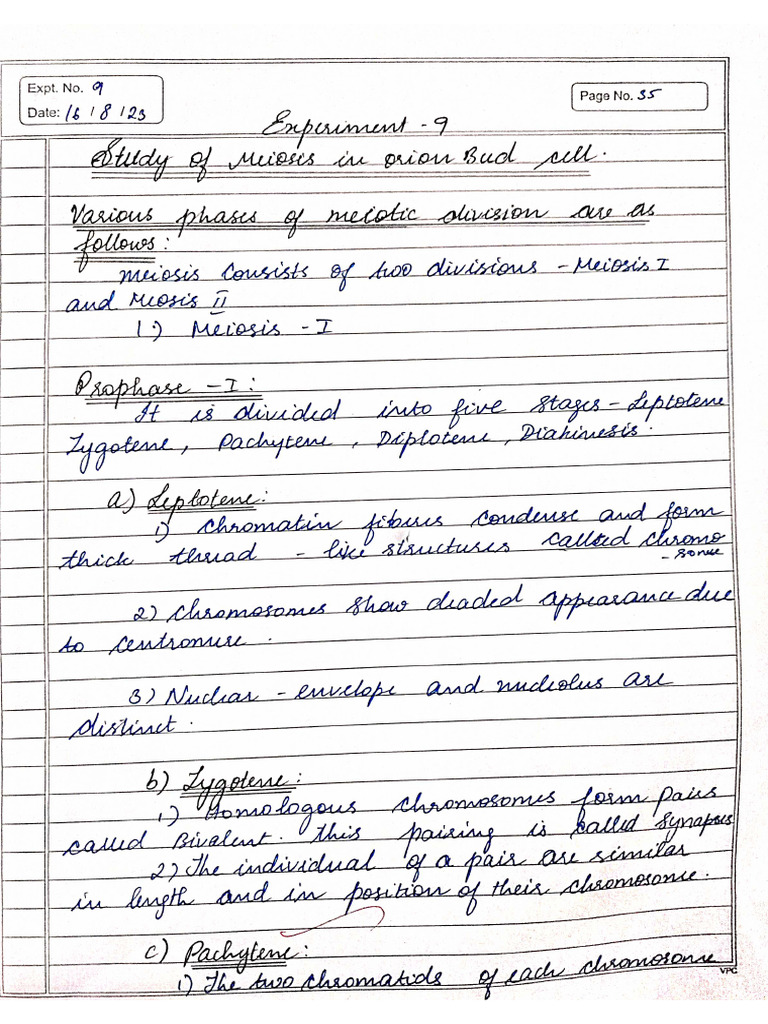 Expt. No. 9
Date: 16 / 8 / 23
Page No. 35
Experiment - 9
Study of Meiosis in orion Bud cell.
Various phases of meiotic division are as
follows:
Meiosis consists of two divisions - Meiosis I
and Meosis II
1.) Meiosis - I
Prophase - I :
It is divided into five stages - Leptotene
Zygotene, Pachytene, Diplotene, Diakinesis.
a) Leptotene:
1) Chromatin fibures condense and form
thick thread - like structures called chromo
- some
2) Chromosomes show deaded appearance due
to centromere.
3) Nuclear - envelope and nucleolus are
distinct.
b) Zygotene:
1) Homologous chromosomes form pairs
called Bivalent. This pairing is called synapses
2) The individual of a pair are similar
in length and in position of their chromosome.
c) Pachytene:
1) The two chromatids of each chromosome
VPC